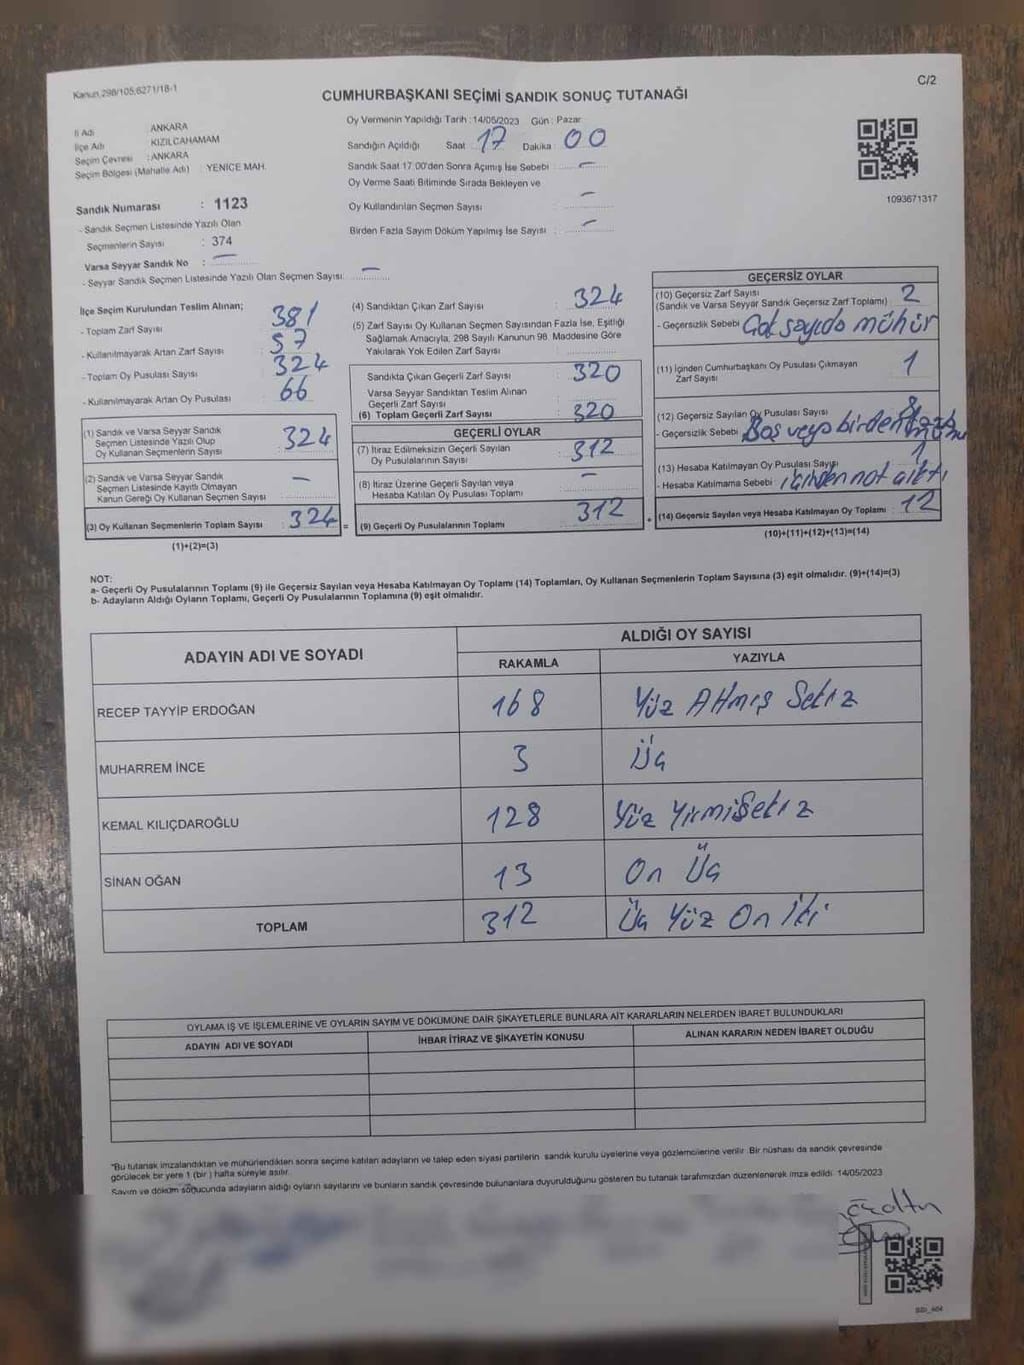 Kanun,298/105,6271/18-1
C/2
CUMHURBAŞKANI SEÇİMİ SANDIK SONUÇ TUTANAĞI
İl Adı : ANKARA
İlçe Adı KIZILCAHAMAM
Seçim Çevresi : ANKARA
Seçim Bölgesi (Mahalle Adı) YENİCE MAH.
Oy Vermenin Yapıldığı Tarih :14/05/2023 Gün : Pazar
Sandığın Açıldığı Saat : 17 Dakika : 00
Sandık Saat 17:00'den Sonra Açımış İse Sebebi : -
Oy Verme Saati Bitiminde Sırada Bekleyen ve
Oy Kullandırılan Seçmen Sayısı : -
Birden Fazla Sayım Döküm Yapılmış İse Sayısı : -
1093671317
Sandık Numarası : 1123
- Sandık Seçmen Listesinde Yazılı Olan
Seçmenlerin Sayısı : 374
Varsa Seyyar Sandık No : -
- Seyyar Sandık Seçmen Listesinde Yazılı Olan Seçmen Sayısı: -
İlçe Seçim Kurulundan Teslim Alınan;
- Toplam Zarf Sayısı : 381
- Kullanılmayarak Artan Zarf Sayısı : 57
- Toplam Oy Pusulası Sayısı : 324
- Kullanılmayarak Artan Oy Pusulası : 66
(1) Sandık ve Varsa Seyyar Sandık
Seçmen Listesinde Yazılı Olup
Oy Kullanan Seçmenlerin Sayısı : 324
(2) Sandık ve Varsa Seyyar Sandık
Seçmen Listesinde Kayıtlı Olmayan
Kanun Gereği Oy Kullanan Seçmen Sayısı : -
(3) Oy Kullanan Seçmenlerin Toplam Sayısı : 324 =
(1)+(2)=(3)
(4) Sandıktan Çıkan Zarf Sayısı : 324
(5) Zarf Sayısı Oy Kullanan Seçmen Sayısından Fazla İse, Eşitliği
Sağlamak Amacıyla, 298 Sayılı Kanunun 98. Maddesine Göre
Yakılarak Yok Edilen Zarf Sayısı
Sandıkta Çıkan Geçerli Zarf Sayısı : 320
Varsa Seyyar Sandıktan Teslim Alınan
Geçerli Zarf Sayısı
(6) Toplam Geçerli Zarf Sayısı : 320
GEÇERLİ OYLAR
(7) İtiraz Edilmeksizin Geçerli Sayılan
Oy Pusulalarının Sayısı : 312
(8) İtiraz Üzerine Geçerli Sayılan veya
Hesaba Katılan Oy Pusulası Toplamı : -
(9) Geçerli Oy Pusulalarının Toplamı : 312 +
GEÇERSİZ OYLAR
(10) Geçersiz Zarf Sayısı
(Sandık ve Varsa Seyyar Sandık Geçersiz Zarf Toplamı) : 2
- Geçersizlik Sebebi Çok sayıda mühür
(11) İçinden Cumhurbaşkanı Oy Pusulası Çıkmayan
Zarf Sayısı : 1
(12) Geçersiz Sayılan Oy Pusulası Sayısı : 8
- Geçersizlik Sebebi Boş veya birden fazla
(13) Hesaba Katılmayan Oy Pusulası Sayısı : 1
- Hesaba Katılmama Sebebi : içinden not çıktı
(14) Geçersiz Sayılan veya Hesaba Katılmayan Oy Toplamı : 12
(10)+(11)+(12)+(13)=(14)
NOT:
a- Geçerli Oy Pusulalarının Toplamı (9) ile Geçersiz Sayılan veya Hesaba Katılmayan Oy Toplamı (14) Toplamları, Oy Kullanan Seçmenlerin Toplam Sayısına (3) eşit olmalıdır. (9)+(14)=(3)
b- Adayların Aldığı Oyların Toplamı, Geçerli Oy Pusulalarının Toplamına (9) eşit olmalıdır.
ADAYIN ADI VE SOYADI
ALDIĞI OY SAYISI
RAKAMLA YAZIYLA
RECEP TAYYİP ERDOĞAN 168 Yüz Altmış Sekiz
MUHARREM İNCE 3 Üç
KEMAL KILIÇDAROĞLU 128 Yüz YirmiSekiz
SİNAN OĞAN 13 On Üç
TOPLAM 312 Üç Yüz On İki
OYLAMA İŞ VE İŞLEMLERİNE VE OYLARIN SAYIM VE DÖKÜMÜNE DAİR ŞİKAYETLERLE BUNLARA AİT KARARLARIN NELERDEN İBARET BULUNDUKLARI
ADAYIN ADI VE SOYADI İHBAR İTİRAZ VE ŞİKAYETİN KONUSU ALINAN KARARIN NEDEN İBARET OLDUĞU
"Bu tutanak imzalandıktan ve mühürlendikten sonra seçime katılan adayların ve talep eden siyasi partilerin sandık kurulu üyelerine veya gözlemcilerine verilir. Bir nüshası da sandık çevresinde
görülecek bir yere 1 (bir ) hafta süreyle asılır.
Sayım ve döküm sonucunda adayların aldığı oyların sayılarını ve bunların sandık çevresinde bulunanlara duyurulduğunu gösteren bu tutanak tarafımızdan düzenlenerek imza edildi. 14/05/2023